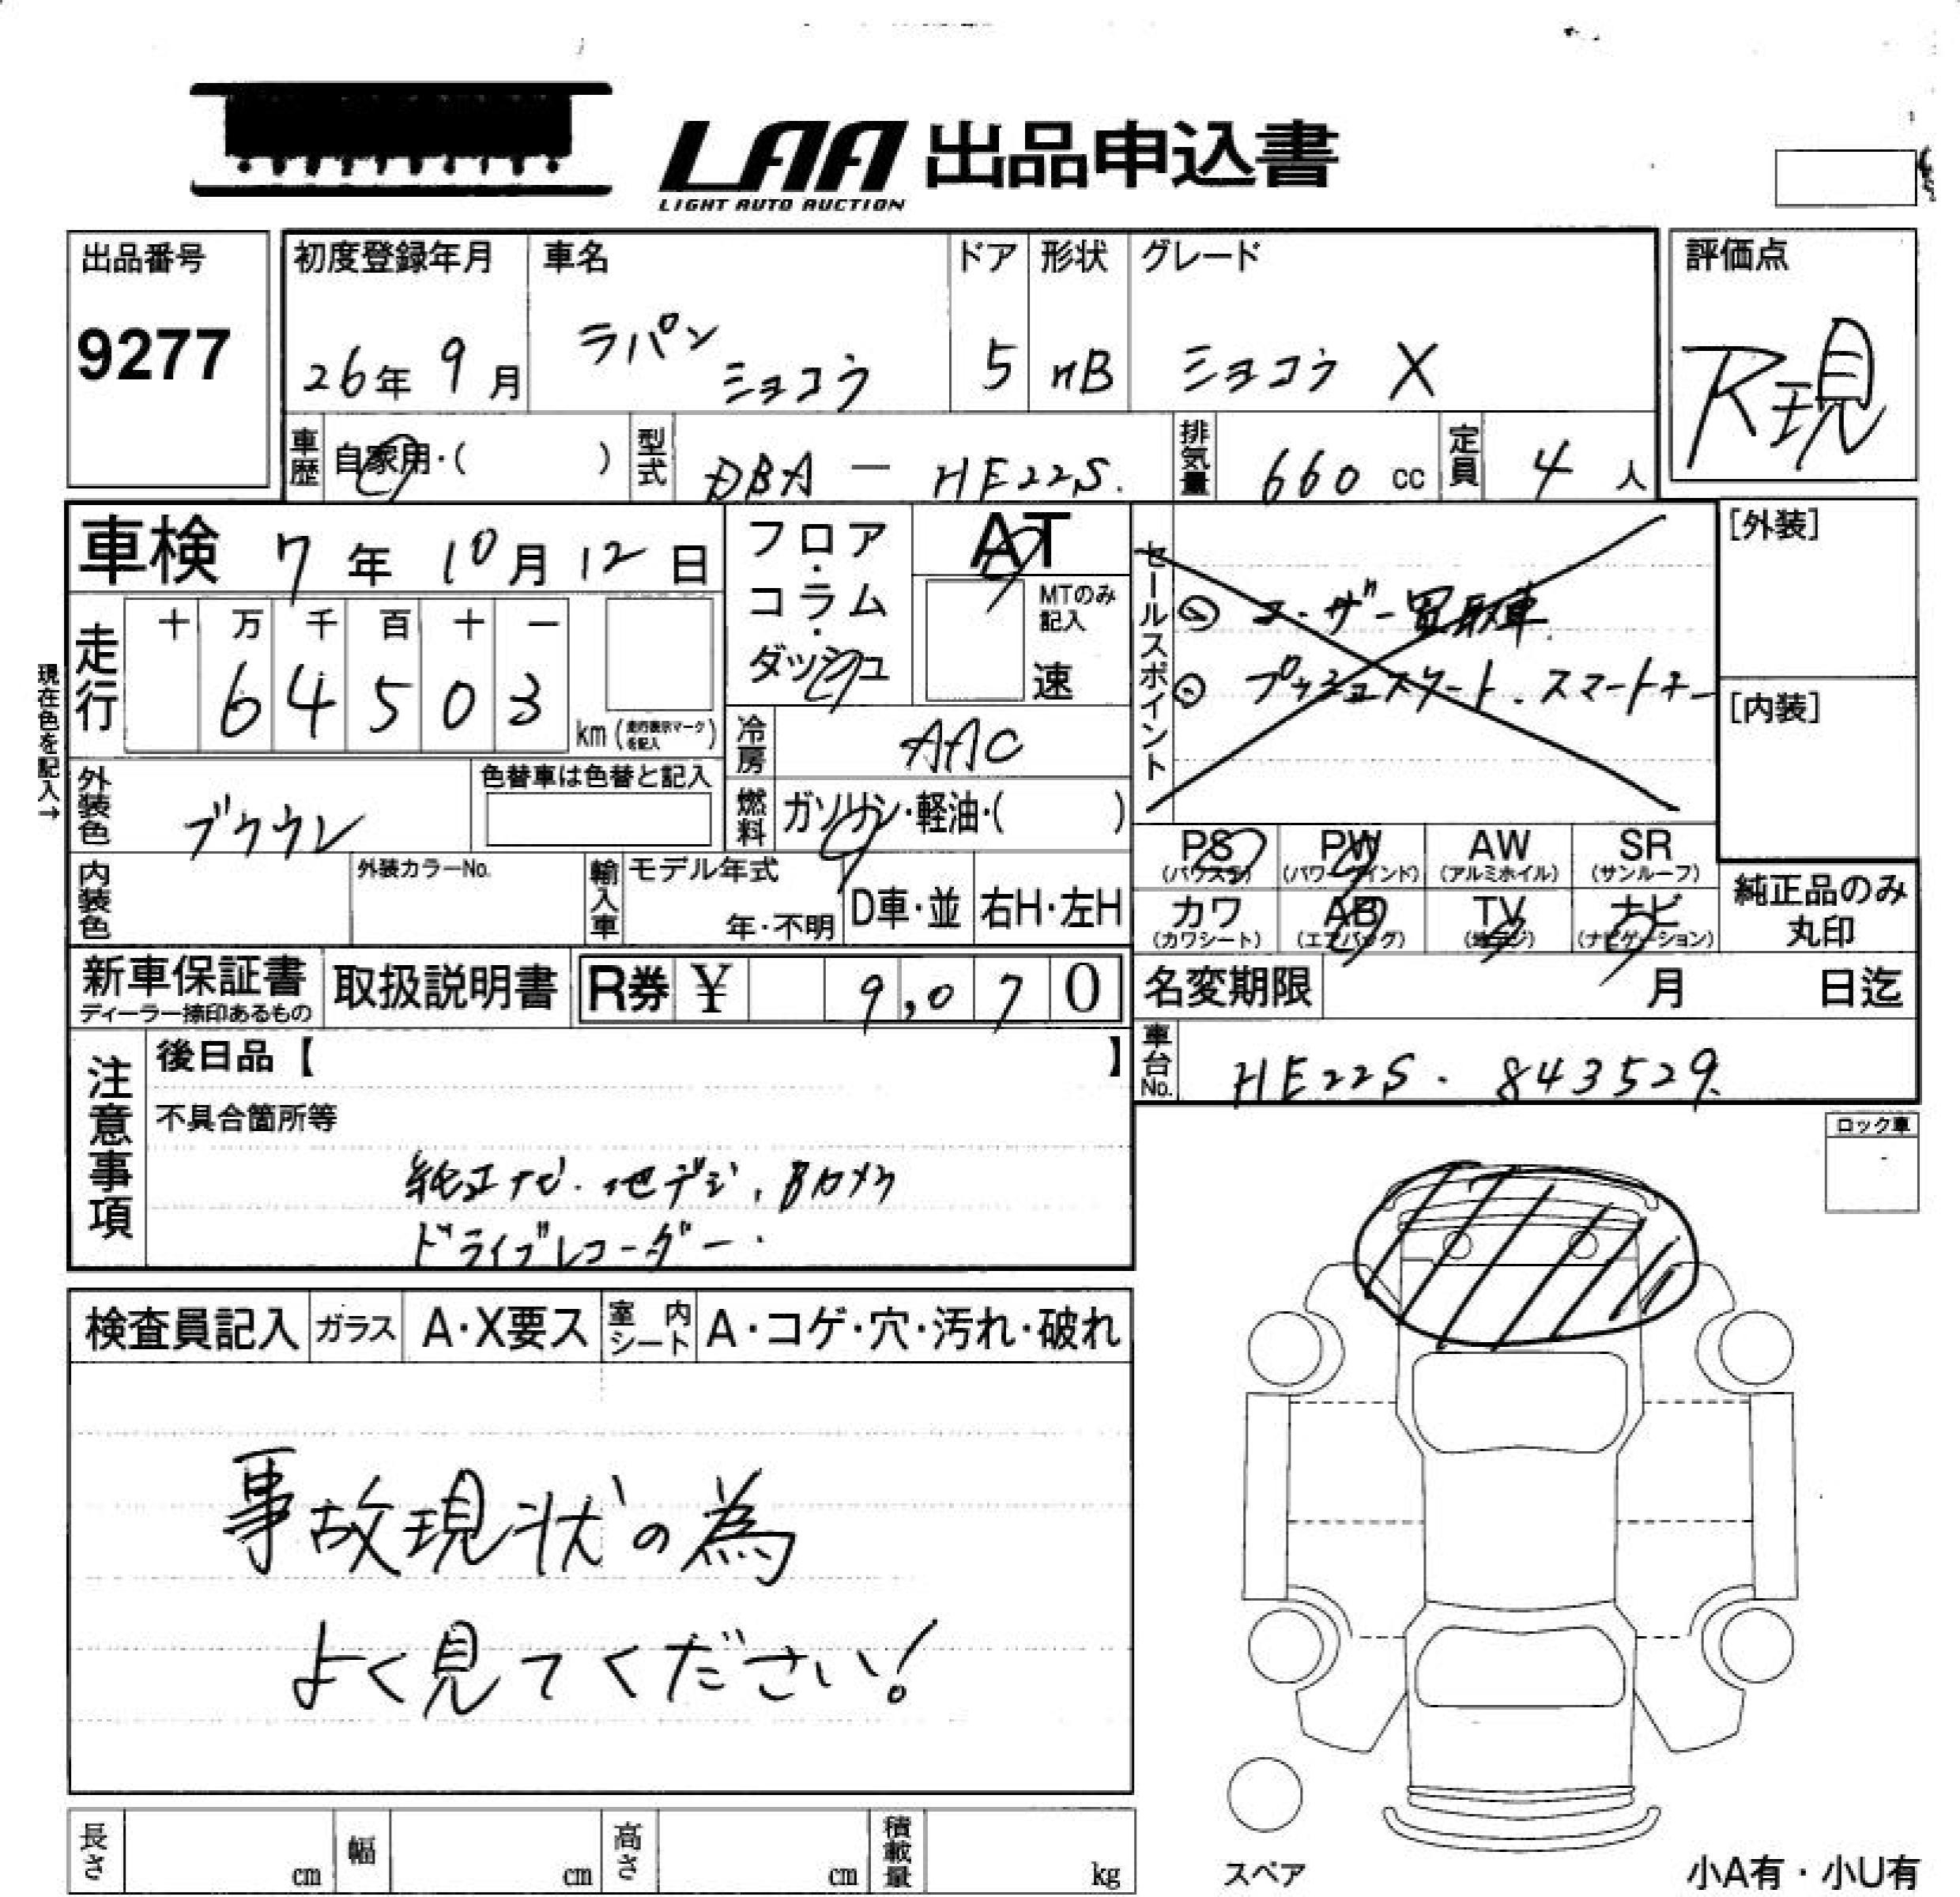 LAA 出品申込書
LIGHT AUTO AUCTION
出品番号
9277
初度登録年月
26年 9月
車名
ラパン
ショコラ
ドア
5
形状
HB
グレード
ショコラ X
評価点
R現
車歴
自家用・( )
型式
DBA - HE22S.
排気量
660 cc
定員
4 人
車検 7年 10月 12日
走行
十 万 千 百 十 一
6 4 5 0 3
km (走行表示マークを記入)
現在色を記入→
フロア・コラム・ダッシュ
AT
MTのみ記入
速
冷房
AAC
燃料
ガソリン・軽油・( )
セールスポイント
ユーザー買取車
プッシュスタート.スマートキー
[外装]
[内装]
外装色
ブラウン
色替車は色替と記入
内装色
外装カラーNo.
輸入車
モデル年式
年・不明
D車・並
右H・左H
PS
(パワステ)
PW
(パワーウインド)
AW
(アルミホイル)
SR
(サンルーフ)
カワ
(カワシート)
AB
(エアバッグ)
TV
(地デジ)
ナビ
(ナビゲーション)
純正品のみ
丸印
新車保証書
ディーラー捺印あるもの
取扱説明書
R券 ¥ 9,070
名変期限 月 日迄
車台No.
HE22S. 843529.
注意事項
後日品【 】
不具合箇所等
純正ナビ.地デジ.Bカメラ
ドライブレコーダー.
ロック車
検査員記入
ガラス
A・X要ス
室内シート
A・コゲ・穴・汚れ・破れ
事故現状の為
よく見てください!
長さ cm
幅 cm
高さ cm
積載量 kg
スペア
小A有・小U有